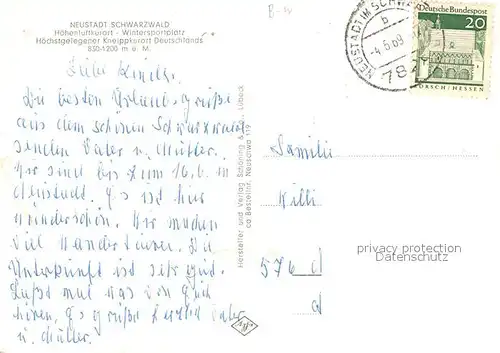 NEUSTADT SCHWARZWALD
Höhenluftkurort - Wintersportplatz
Höchstgelegener Kneippkurort Deutschlands
850-1200 m ü. M.
Liebe Kinder.
Die besten Urlaubsgrüße
aus dem schönen Schwarzwald
senden Vater u. Mutter.
Wir sind bis zum 16.6. in
Neustadt. Es ist hier
wunderschön. Wir machen
viel Wandertouren. Die
Unterkunft ist sehr gut.
Laßt mal was von Euch
hören. Es grüßt herzlich Vater
u. Mutter.
Hersteller und Verlag Schöning & Co., Lübeck
Bestellnr. Neuschw 119
Agfa
B-
NEUSTADT IM SCHWARZW
b
-4.6.69
782
Deutsche Bundespost
20
LORSCH/HESSEN
Familie
Willi
576
privacy protection
Datenschutz